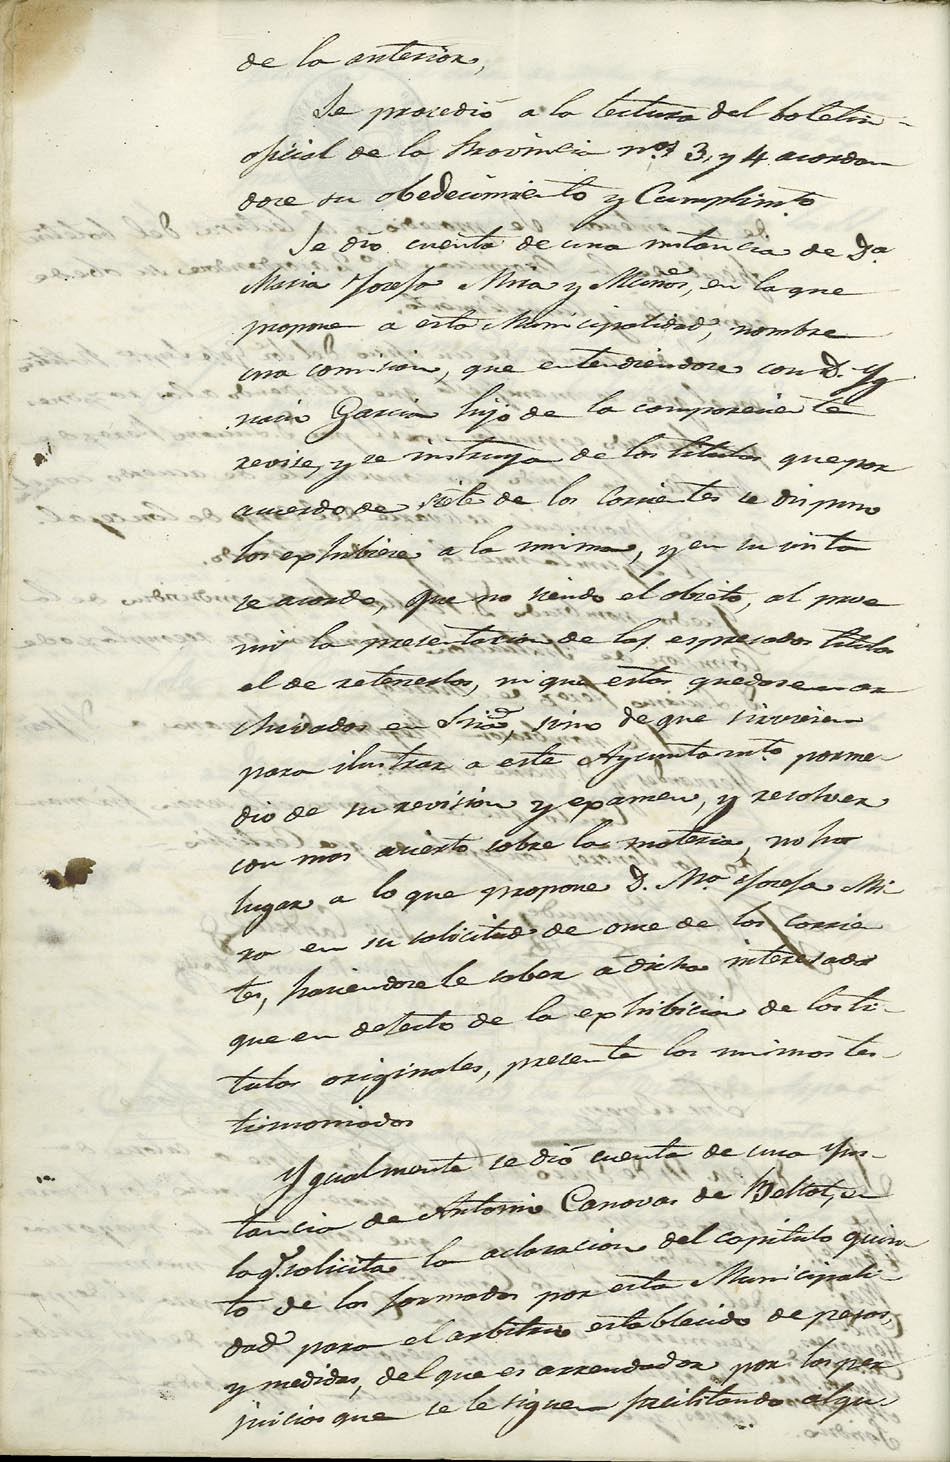 de la anterior,
Se procedió a la lectura del boletin
oficial de la Provincia nos 3, y 4 acordan
dose su obedecimiento y Cumplimto
Se dió cuenta de una instancia de Da
Maria Josefa Mira y Muñoz, en la que
propone a esta Municipalidad, nombre
una comision, que entendiendose con D. Yg
nacio Garcia hijo de la compareciente
revise, y se instruya de los titulos que por
acuerdo de siete de los Corrientes se dispuso
los exhibiese a la misma, y en su vista
se acordó, que no siendo el objeto, al preve
nir la presentacion de los espresados titulos
el de retenerlos, ni que estos quedasen ar
chivados en Sria, sino de que sirviesen
para ilustrar a este Ayuntamto por me-
dio de su revision y examen, y resolver
con mas acierto sobre la materia, no ha
lugar a lo que propone D. Ma Josefa Mi-
ra en su solicitud de once de los corrien
tes, haciendosele saber a dicha interesada
que en defecto de la exhibicion de los ti-
tulos originales, presente los mismos tes-
timoniados
Ygualmente se dió cuenta de una Yns-
tancia de Antonio Canovas de Beltot, en
la q. solicita la aclaracion del capitulo quin
to de los formados por esta Municipali-
dad para el arbitrio establecido de pesos,
y medidas, del que es arrendador por los per
juicios que se le siguen facilitando algu-